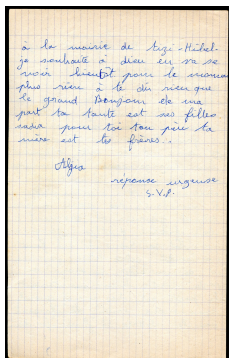 à la mairie de tizi-Hibel
je souhaite a dieu en va se
voir bientot pour le moment
plus rien à te dir rien que
le grand Bonjour de ma
part ta tante est ses filles
radia pour toi ton père ta
mère est tes frères.
réponse urgense
S.V.P.